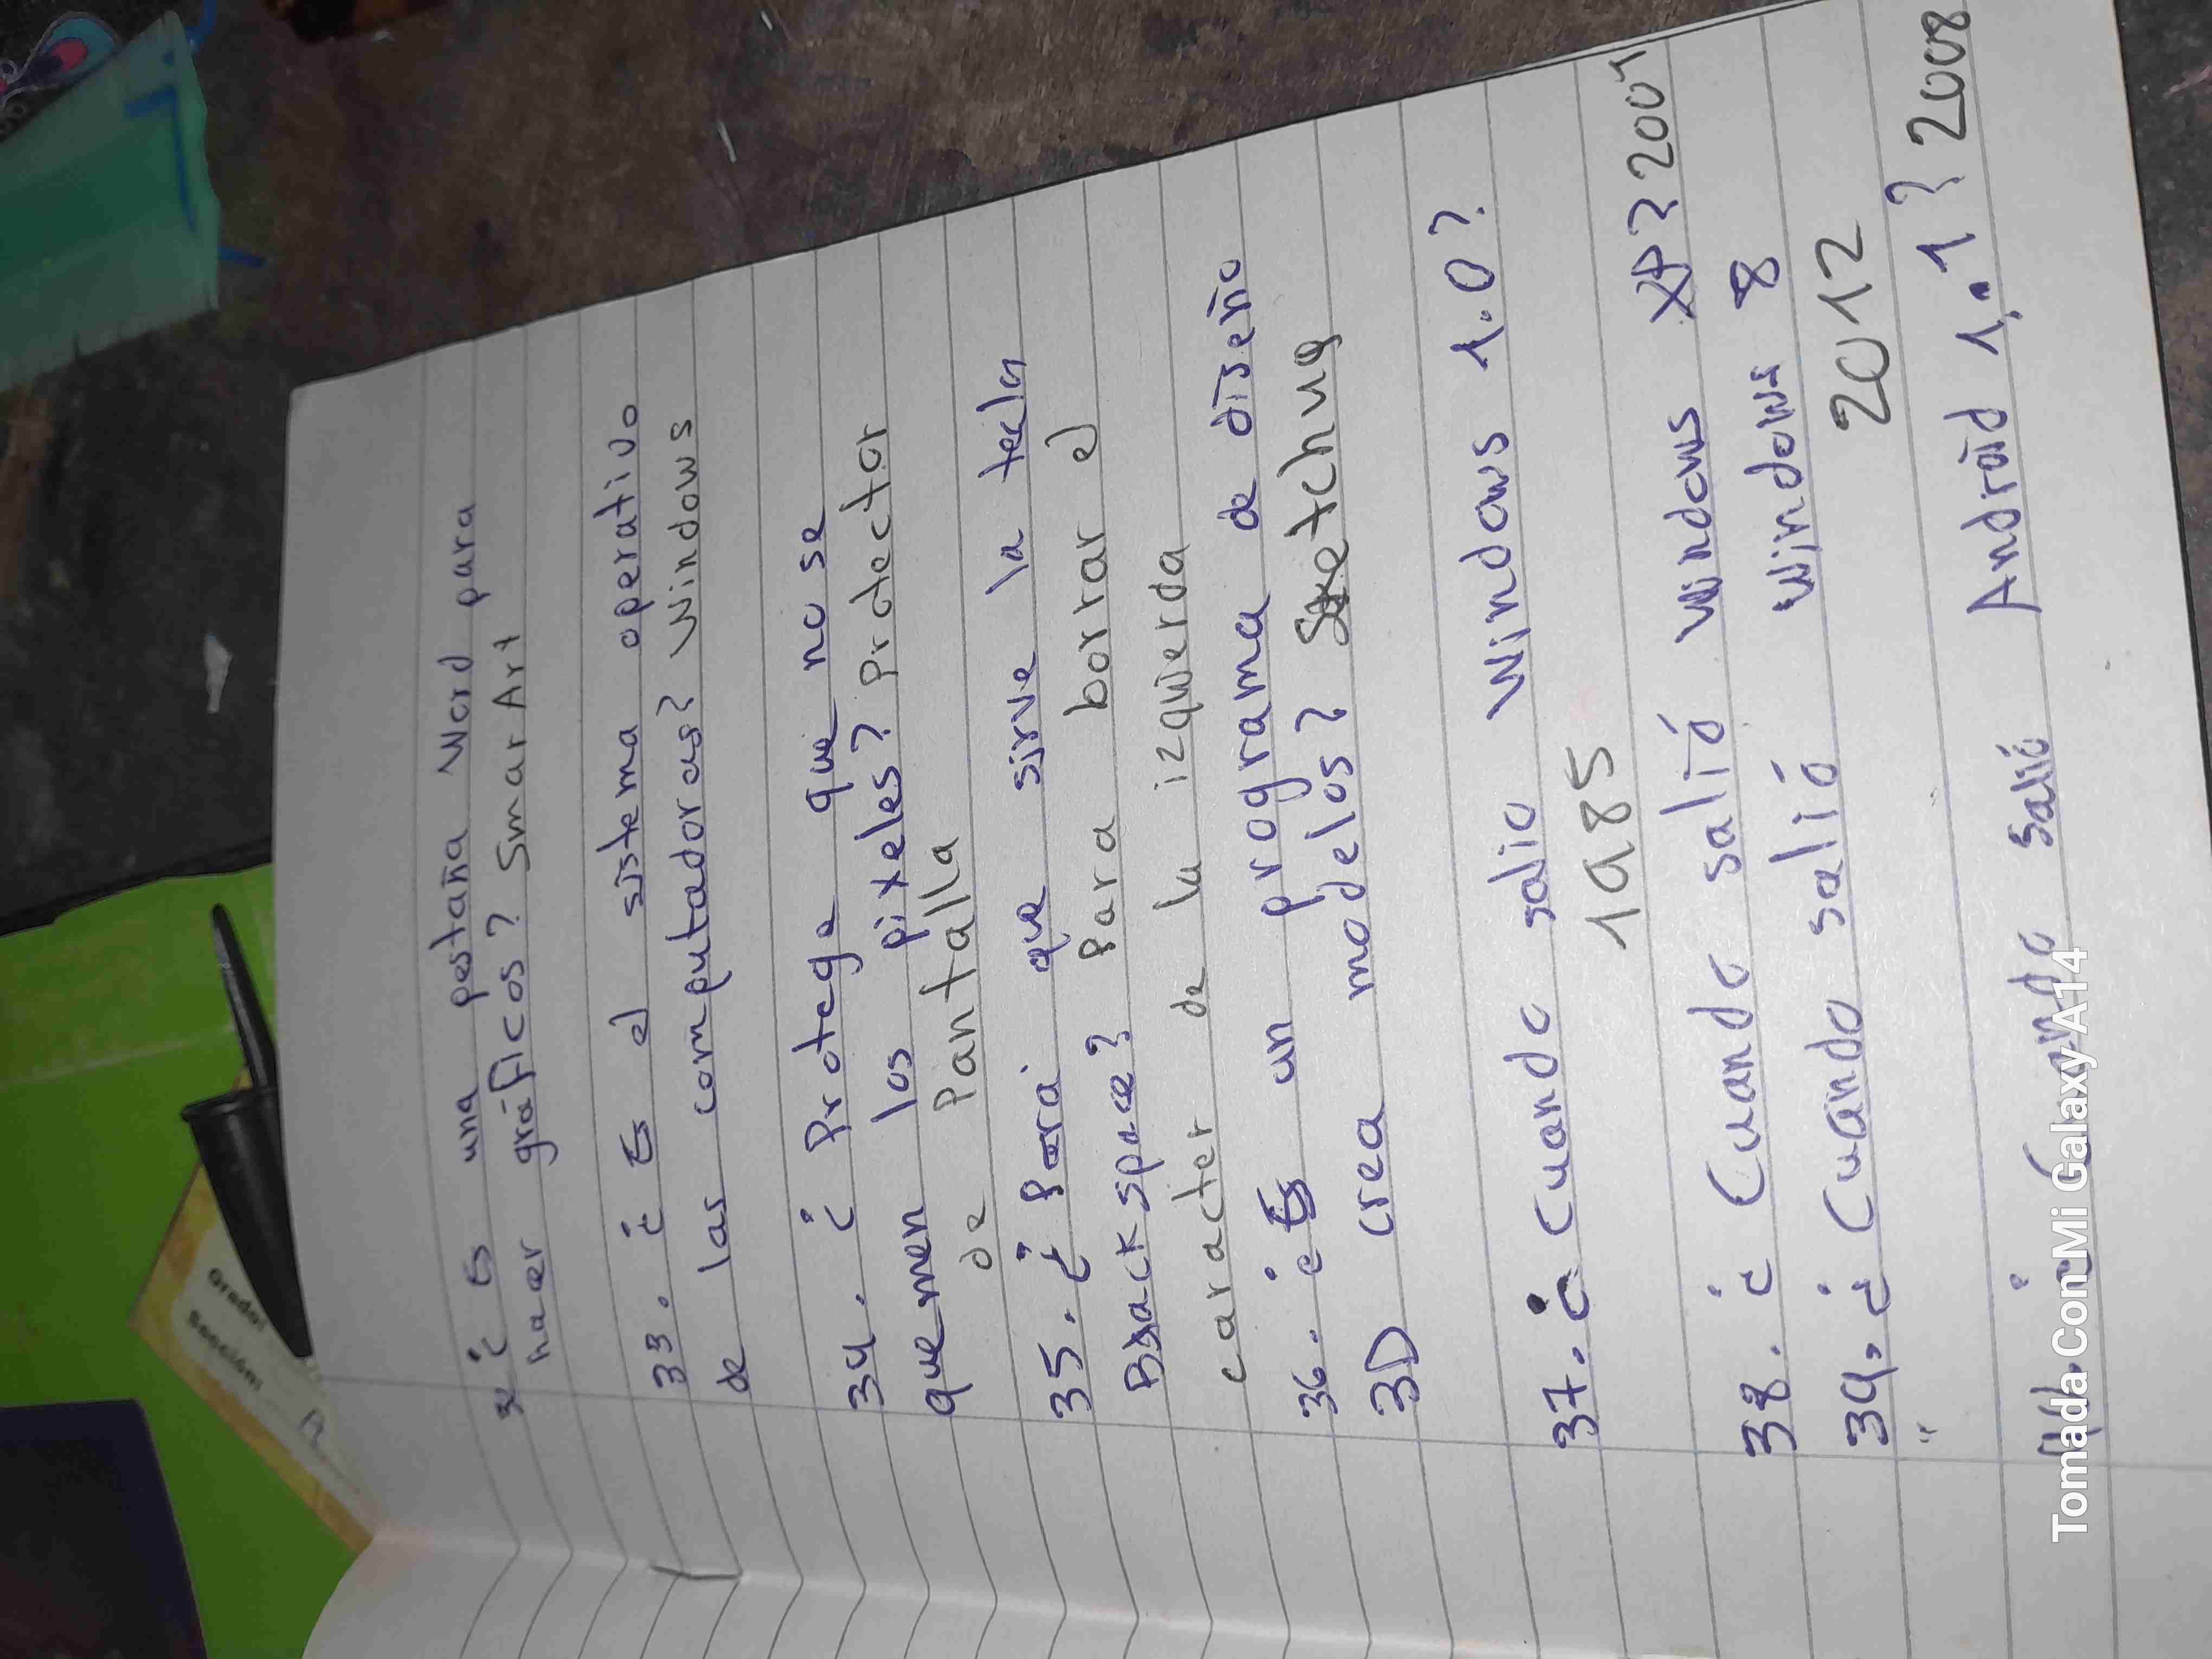 32 ¿ Es una pestaña Word para
hacer gráficos? SmarArt
33. ¿ Es el sistema operativo
de las computadoras? Windows
34. ¿ Protege que no se
quemen los pixeles? Protector
de Pantalla
35. ¿ Para que sirve la tecla
Backspace? Para borrar el
caracter de la izquierda
36. ¿Es un programa de diseño
3D crea modelos? Sketchup
37. ¿ Cuando salio Windows 1.0?
1985
38. ¿ Cuando salió Windows XP? 2001
39. ¿ Cuando salió Windows 8
2012
¿ Cuando salió Android 1.1? 2008
Tomada Con Mi Galaxy A14
Grado:
Sección: A